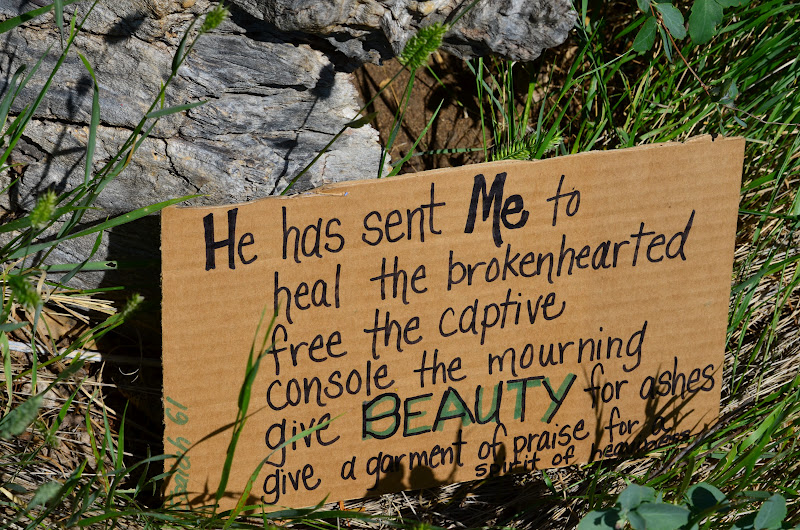 He has sent Me to
heal the brokenhearted
free the captive
console the mourning
give BEAUTY for ashes
give a garment of praise for a
spirit of heaviness
Isaiah 61